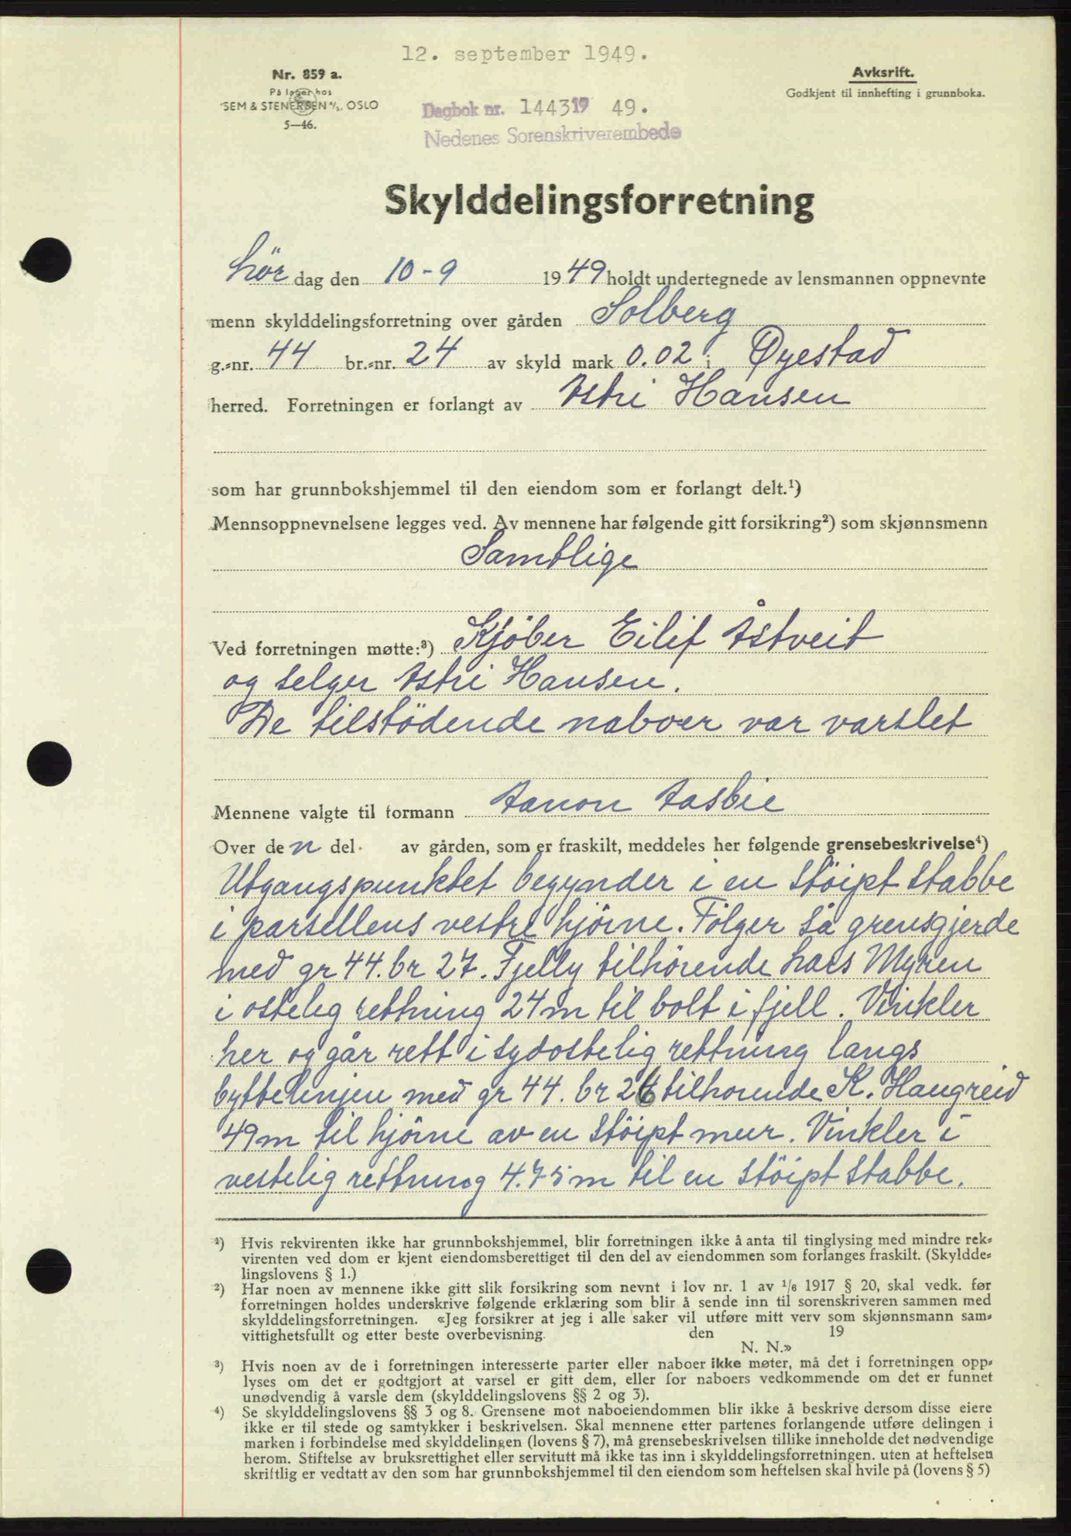 12. september 1949.
Nr. 859 a.
På lager hos
SEM & STENERSEN A/S. OSLO
5—46.
Avksrift.
Godkjent til innhefting i grunnboka.
Dagbok nr. 1443 19 49.
Nedenes Sorenskriverembede
Skylddelingsforretning
Lör dag den 10-9 1949 holdt undertegnede av lensmannen oppnevnte
menn skylddelingsforretning over gården Solberg
g.-nr. 44 br.-nr. 24 av skyld mark 0.02 i Øyestad
herred. Forretningen er forlangt av Astri Hansen
som har grunnbokshjemmel til den eiendom som er forlangt delt.¹)
Mennsoppnevnelsene legges ved. Av mennene har følgende gitt forsikring²) som skjønnsmenn
Samtlige
Ved forretningen møtte:³) Kjöber Eilif Åstveit
og selger Astri Hansen.
De tilstödende naboer var varslet
Mennene valgte til formann Aanon Aasbie
Over den del av gården, som er fraskilt, meddeles her følgende grensebeskrivelse⁴)
Utgangspunktet begynder i en stöipt stabbe
i parsellens vestre hjörne. Fölger så grensgjerde
med gr 44. br 27. Fjelly tilhörende Lars Myren
i ostelig rettning 24 m til bolt i fjell. Vinkler
her og går rett i sydostelig rettning langs
byttelinjen med gr 44. br 26 tilhorende K. Haugreid
49 m til hjörne av en stöipt mur. Vinkler i
vestelig rettning 4.75 m til en stöipt stabbe.
¹) Hvis rekvirenten ikke har grunnbokshjemmel, blir forretningen ikke å anta til tinglysing med mindre rek-
virenten ved dom er kjent eiendomsberettiget til den del av eiendommen som forlanges fraskilt. (Skyldde-
lingslovens § 1.)
²) Har noen av mennene ikke gitt slik forsikring som nevnt i lov nr. 1 av 1/6 1917 § 20, skal vedk. før
forretningen holdes underskrive følgende erklæring som blir å sende inn til sorenskriveren sammen med
skylddelingsforretningen. «Jeg forsikrer at jeg i alle saker vil utføre mitt verv som skjønnsmann sam-
vittighetsfullt og etter beste overbevisning. den 19
N. N.»
³) Hvis noen av de i forretningen interesserte parter eller naboer ikke møter, må det i forretningen opp-
lyses om det er godtgjort at varsel er gitt dem, eller for naboers vedkommende om det er funnet
unødvendig å varsle dem (skylddelingslovens §§ 2 og 3).
⁴) Se skylddelingslovens §§ 3 og 8. Grensene mot naboeiendommen blir ikke å beskrive dersom disse eiere
ikke er til stede og samtykker i beskrivelsen. Skal mennene etter partenes forlangende utføre delingen i
marken i forbindelse med skylddelingen (lovens § 7), må grensebeskrivelsen tillike inneholde det nødvendige
herom. Stiftelse av bruksrettighet eller servitutt må ikke tas inn i skylddelingsforretningen. uten at heftelsen
skriftlig er vedtatt av den som har grunnbokshjemmel til den eiendom som heftelsen skal hvile på (lovens § 5)